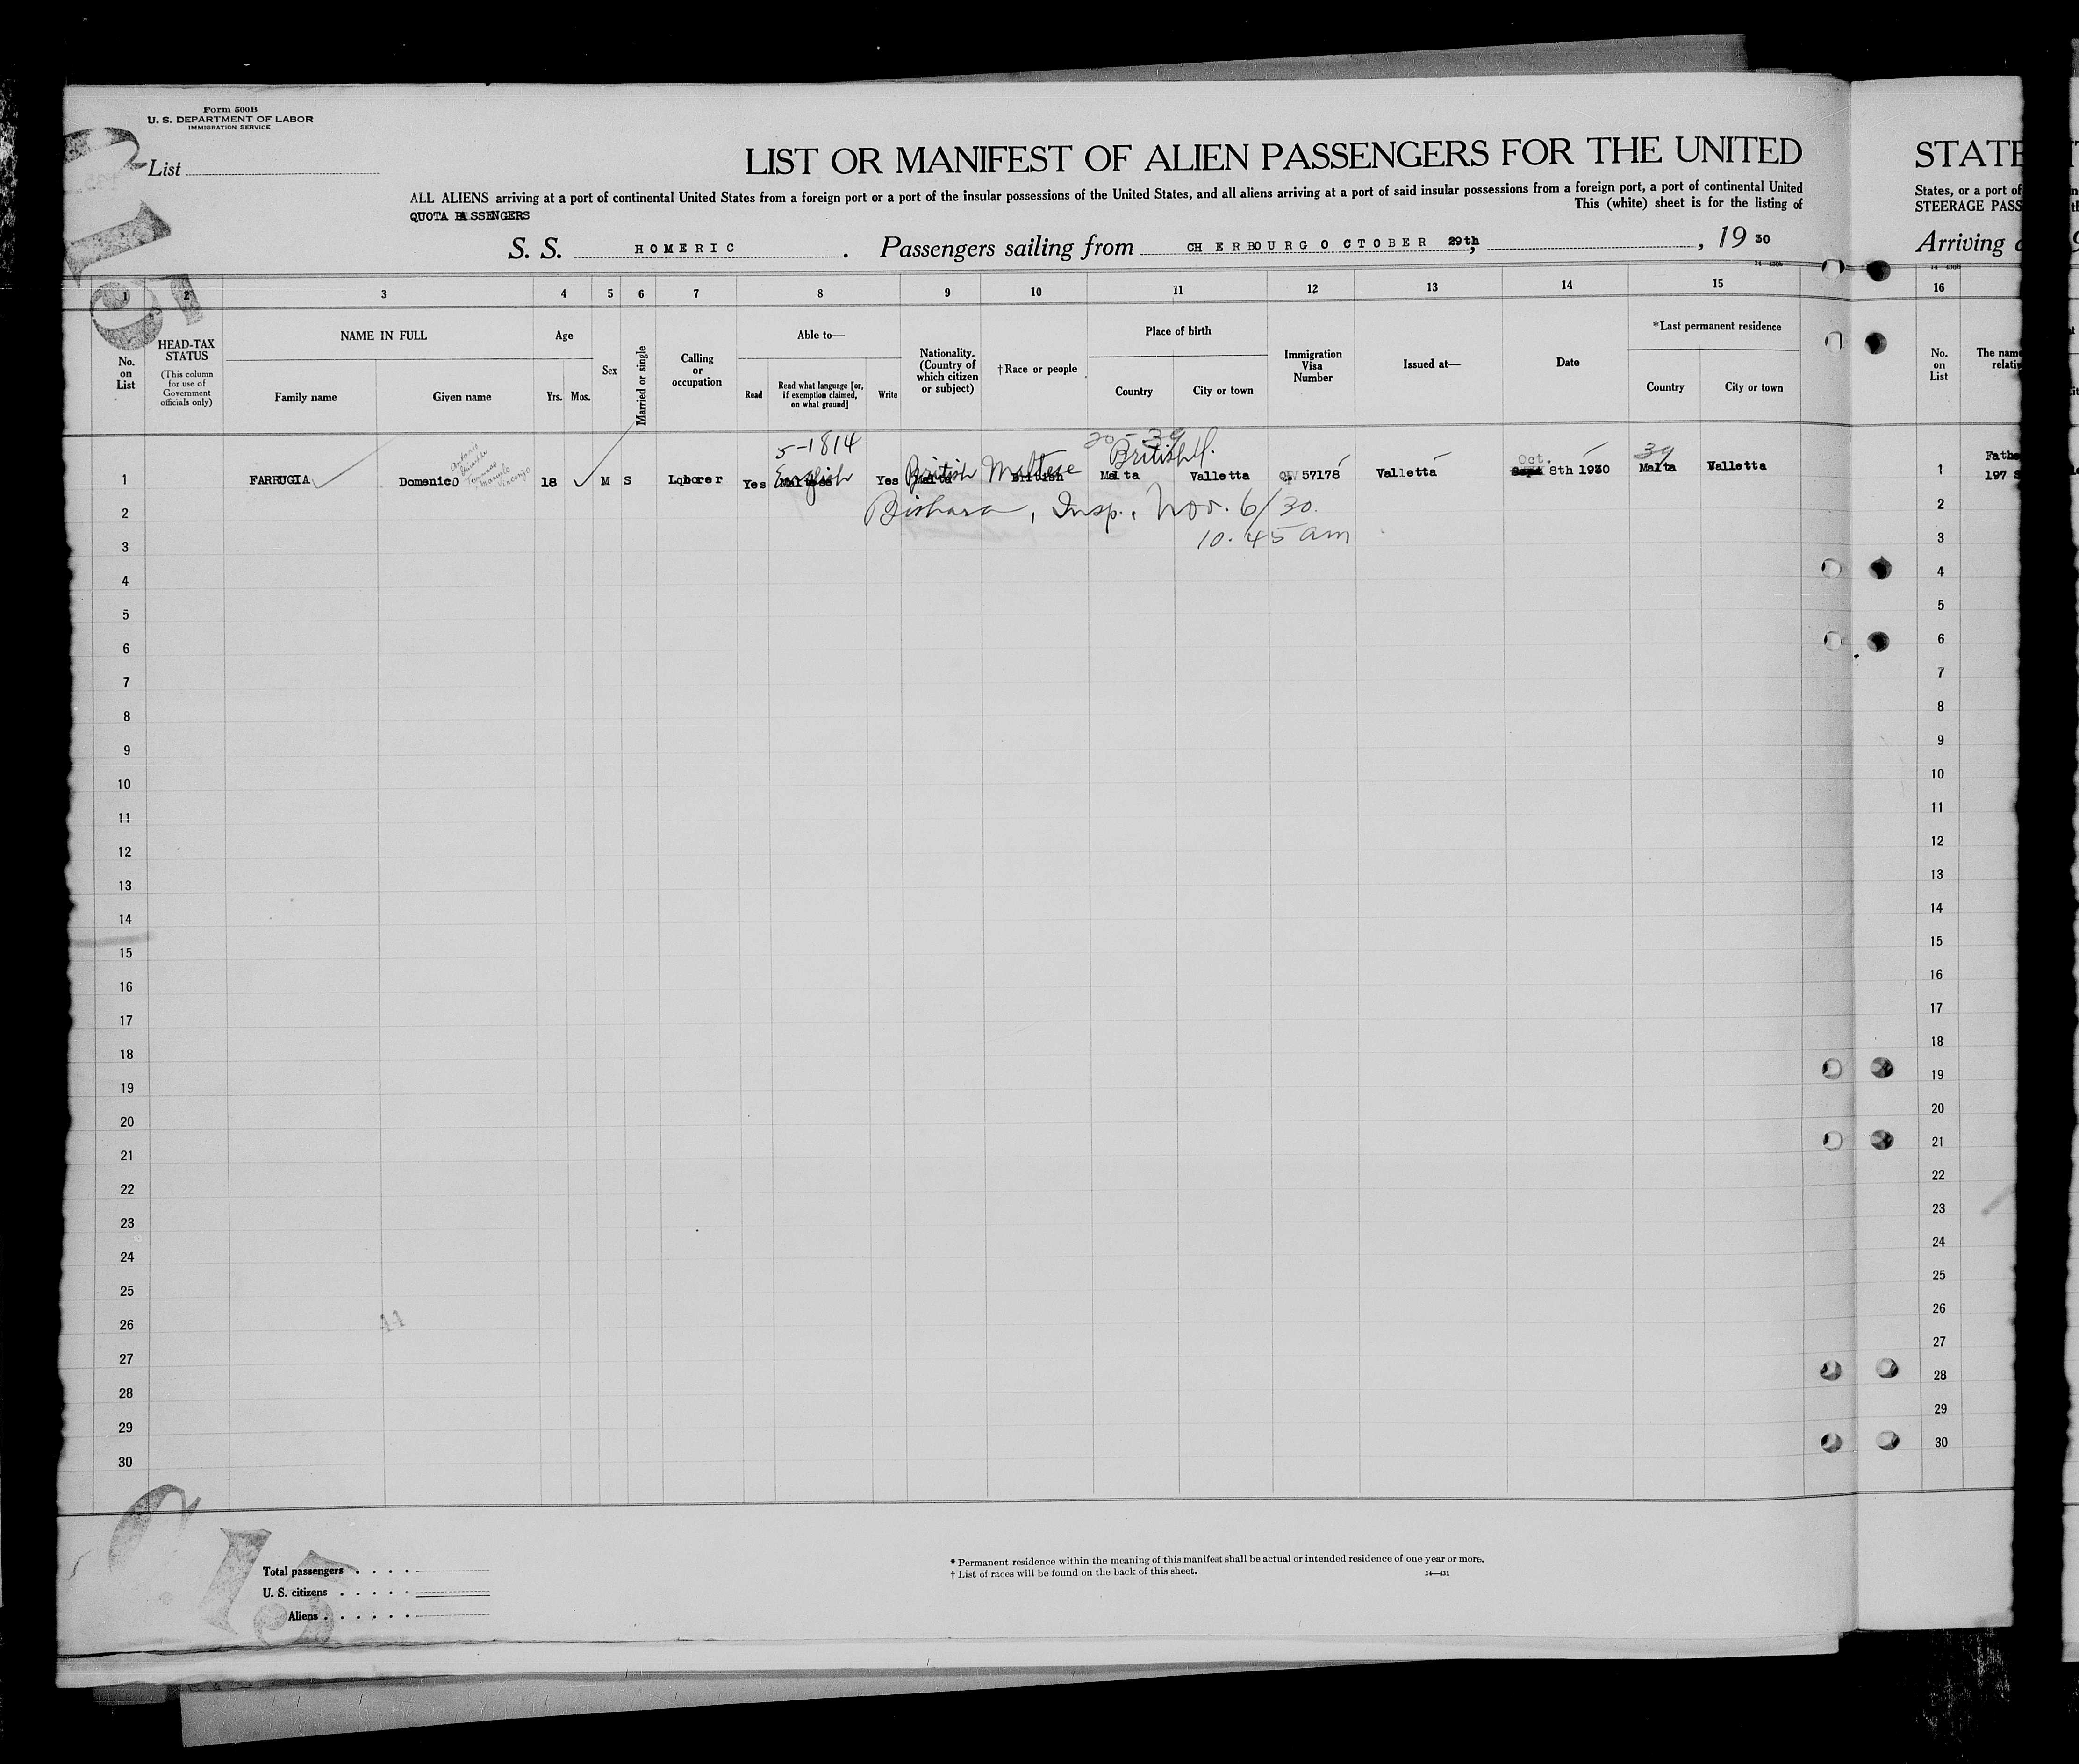 Form 500B
U. S. DEPARTMENT OF LABOR
IMMIGRATION SERVICE
List
LIST OR MANIFEST OF ALIEN PASSENGERS FOR THE UNITED
ALL ALIENS arriving at a port of continental United States from a foreign port or a port of the insular possessions of the United States, and all aliens arriving at a port of said insular possessions from a foreign port, a port of continental United
QUOTA PASSENGERS This (white) sheet is for the listing of
S. S. HOMERIC . Passengers sailing from CHERBOURG OCTOBER 29th, , 19 30
1 2 3 4 5 6 7 8 9 10 11 12 13 14 15
No. on List
HEAD-TAX STATUS
(This column for use of Government officials only)
NAME IN FULL
Family name Given name
Age
Yrs. Mos.
Sex
Married or single
Calling or occupation
Able to—
Read
Read what language [or, if exemption claimed, on what ground]
Write
Nationality. (Country of which citizen or subject)
†Race or people
Place of birth
Country City or town
Immigration Visa Number
Issued at—
Date
*Last permanent residence
Country City or town
5-1814 20-39 British 39
1 FARRUGIA Domenico 18 M S Laborer Yes English Yes British Maltese British Malta Valletta QIV 57178 Valletta Oct. 8th 1930 Malta Valletta
2 Bishara, Insp., Nov. 6/30.
3 10.45 am
4
5
6
7
8
9
10
11
12
13
14
15
16
17
18
19
20
21
22
23
24
25
26
27
28
29
30
Total passengers
U. S. citizens
Aliens
* Permanent residence within the meaning of this manifest shall be actual or intended residence of one year or more.
† List of races will be found on the back of this sheet. 14—431
STATE
States, or a port of
STEERAGE PASS
Arriving
16
No. on List
The name
relativ
1 Fathe
197 S
2
3
4
5
6
7
8
9
10
11
12
13
14
15
16
17
18
19
20
21
22
23
24
25
26
27
28
29
30